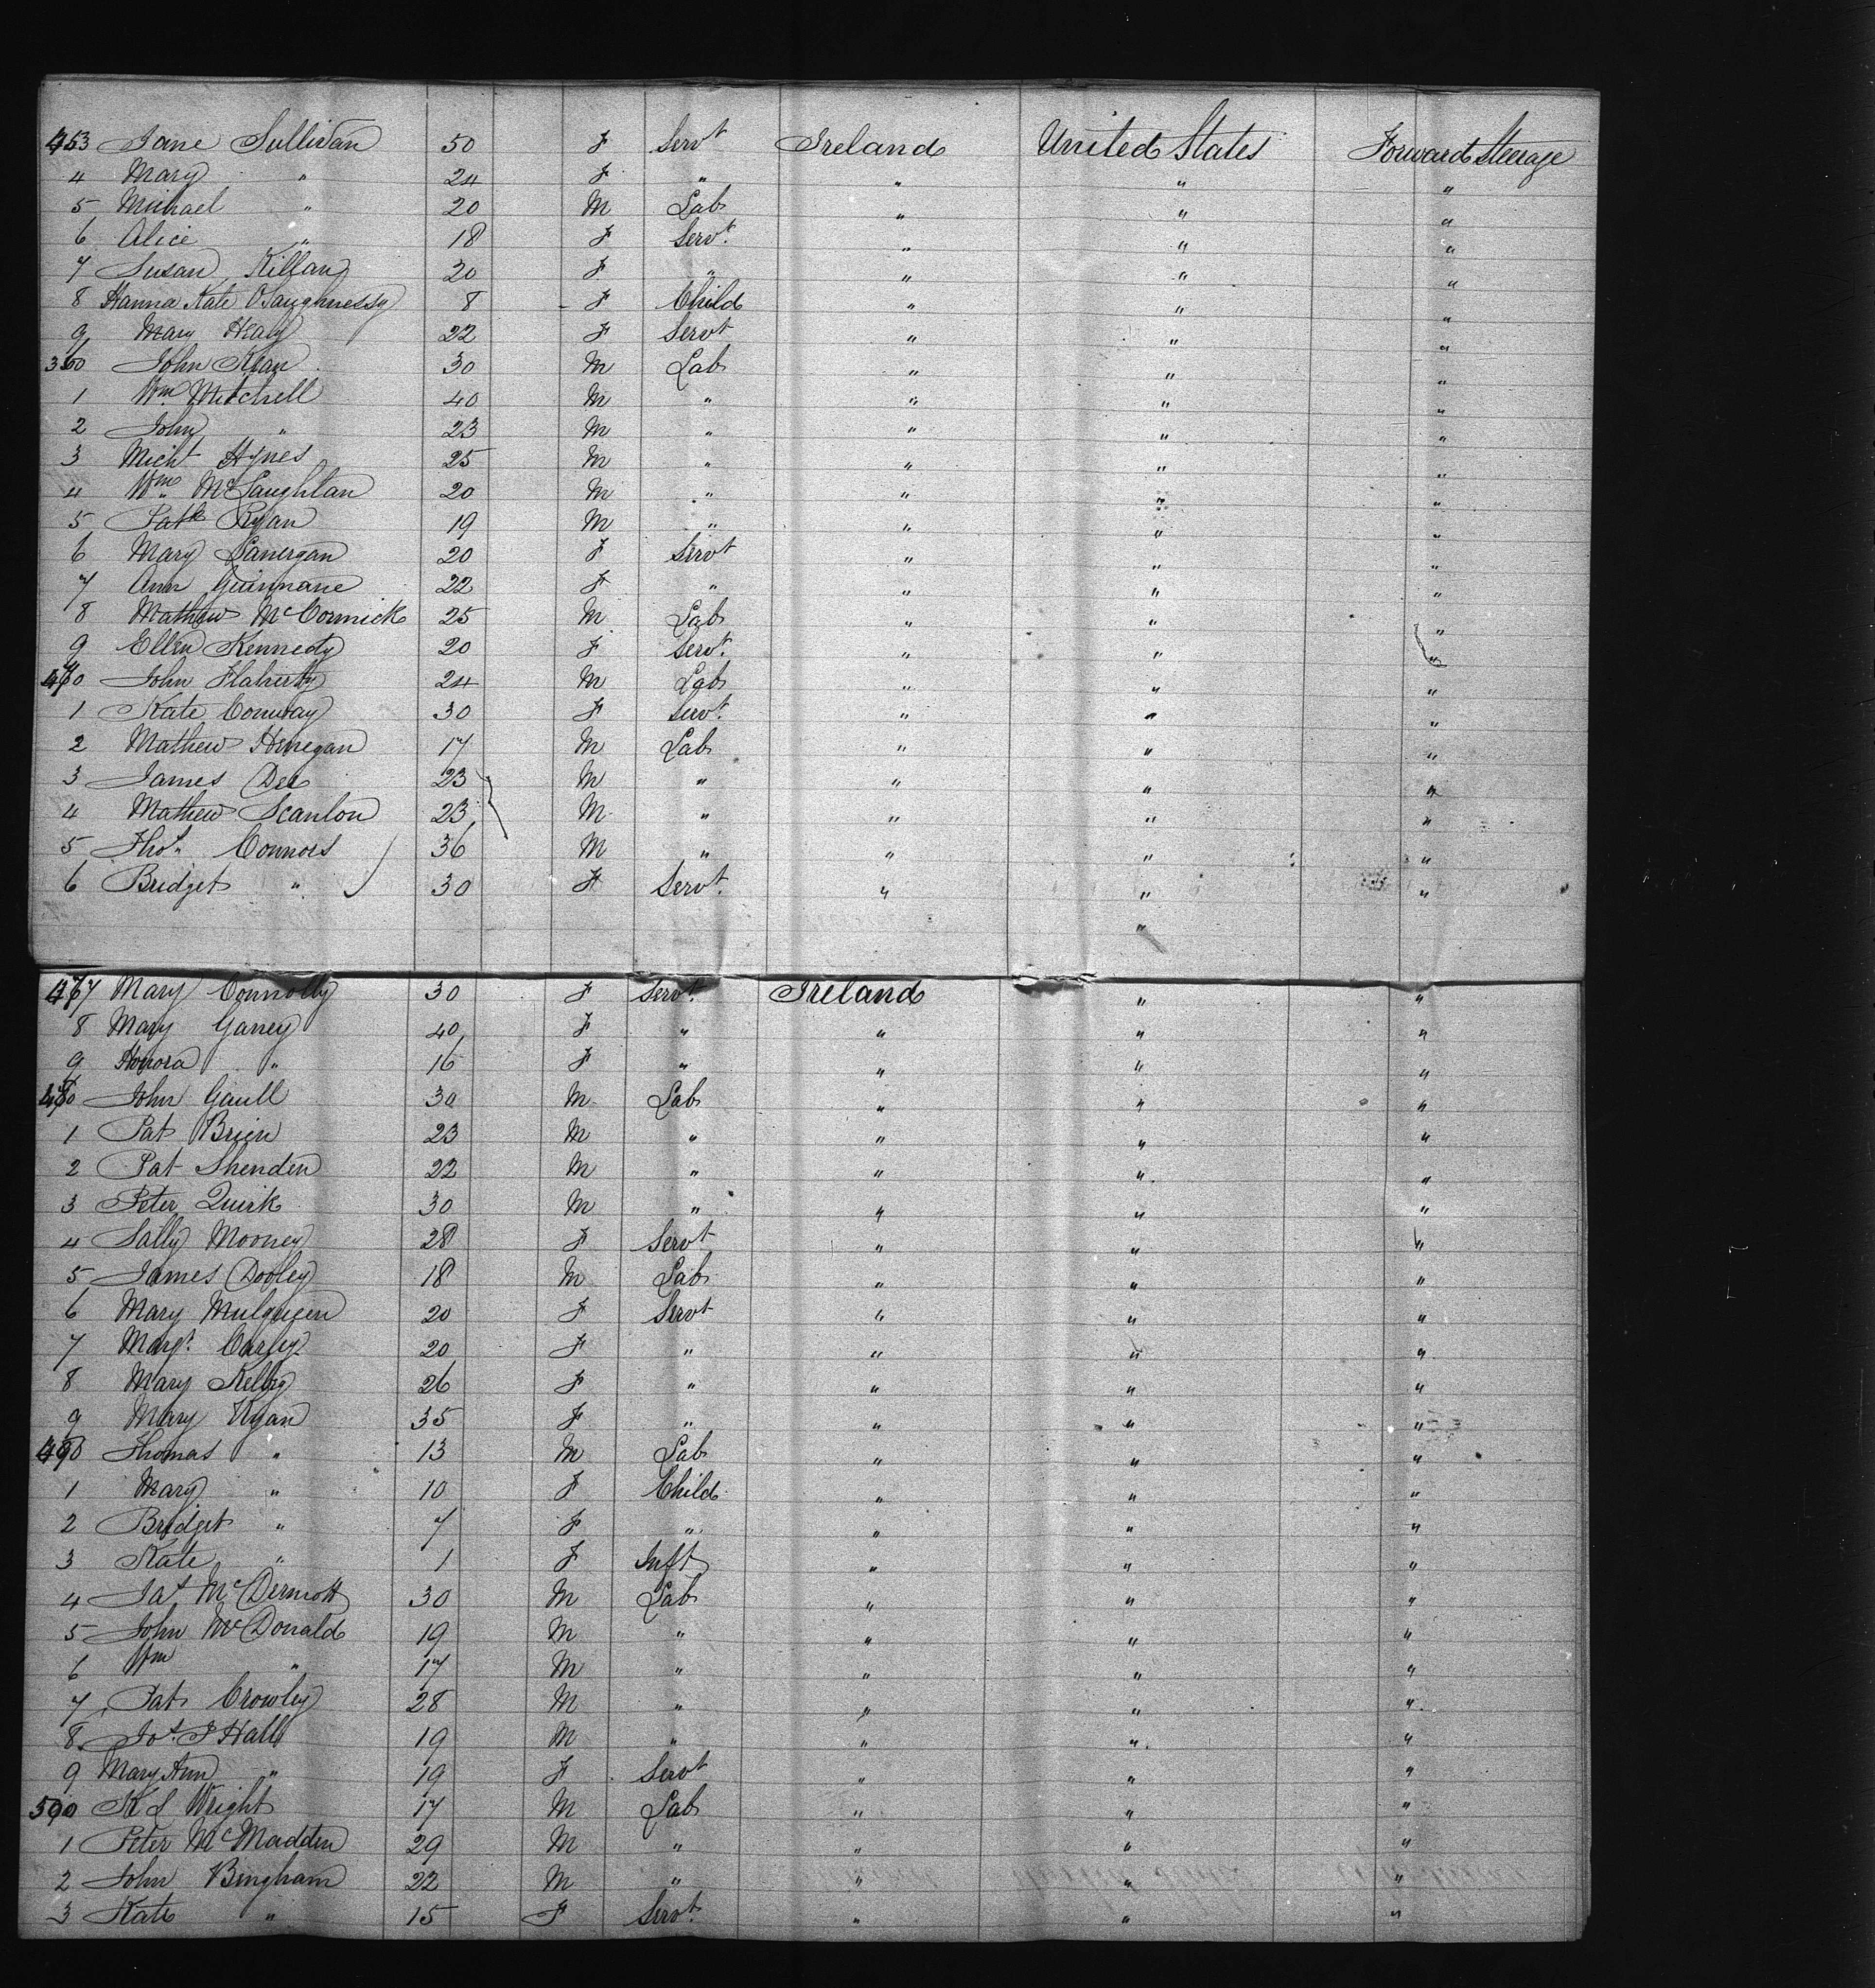 453 Jane Sullivan 50 F Servt Ireland United States Forward Steerage
4 Mary " 24 F " " " "
5 Michael " 20 M Lab " " "
6 Alice " 18 F Servt. " " "
7 Susan Killan 30 F " " " "
8 Hanna Kate OSaughnessy 8 F Child " " "
9 Mary Healy 22 F Servt " " "
360 John Kean 30 M Lab " " "
1 Wm Mitchell 40 M " " " "
2 John " 23 M " " " "
3 Michl Hynes 25 M " " " "
4 Wm McLaughlan 20 M " " " "
5 Patk Ryan 19 M " " " "
6 Mary Lanergan 20 F Servt " " "
7 Ann Guinnane 22 F " " " "
8 Mathew McCormick 25 M Lab " " "
9 Ellen Kennedy 20 F Servt. " " "
470 John Flaherty 24 M Lab " " "
1 Kate Conway 30 F Servt. " " "
2 Mathew Hinegan 17 M Lab " " "
3 James Dee 23 M " " " "
4 Mathew Scanlon 23 M " " " "
5 Thos. Connors 36 M " " " "
6 Bridget " 30 F Servt. " " "
"
477 Mary Connolly 30 F Servt. Ireland " "
8 Mary Garvey 40 F " " " "
9 Honora " 16 F " " " "
480 John Gaull 30 M Lab " " "
1 Pat Brien 23 M " " " "
2 Pat Shenden 22 M " " " "
3 Peter Quirk 30 M " " " "
4 Sally Mooney 28 F Servt " " "
5 James Dooley 18 M Lab " " "
6 Mary Mulqueen 20 F Servt " " "
7 Margt. Carley 20 F " " " "
8 Mary Kelley 26 F " " " "
9 Mary Ryan 35 F " " " "
490 Thomas " 13 M Lab " " "
1 Mary " 10 F Child " " "
2 Bridget " 7 F " " " "
3 Kate " 1 F Inft " " "
4 Jas McDermott 30 M Lab " " "
5 John McDonald 19 M " " " "
6 Wm " 17 M " " " "
7 Pat Crowley 28 M " " " "
8 Jos. J Hall 19 M " " " "
9 Mary Ann " 19 F Servt " " "
500 K L Wright 17 M Lab " " "
1 Peter McMadden 29 M " " " "
2 John Bingham 22 M " " " "
3 Kate " 15 F Servt. " " "